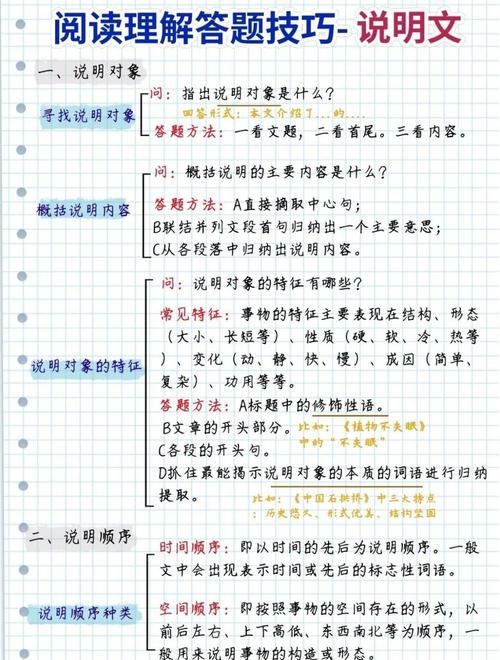 阅读理解答题技巧-说明文
一、说明对象
寻找说明对象
问：指出说明对象是什么？
回答形式：本文介绍了...的....
答题方法：一看文题，二看首尾。三看内容。
概括说明内容
问：概括说明的主要内容是什么？
答题方法：A直接摘取中心句；
B联结并列文段首句归纳出一个主要意思；
C从各段落中归纳出说明内容。
说明对象的特征
问：说明对象的特征有哪些？
常见特征：事物的特征主要表现在结构、形态
（大小、长短等）、性质（硬、软、冷、热等
）、变化（动、静、快、慢）、成因（简单、
复杂）、功用等等。
答题方法：A标题中的修饰性语。
B文章的开头部分。
比如：《植物不失眠》
中的“不失眠”
C各段的开头句。
D抓住最能揭示说明对象的本质的词语进行归纳
提取。
比如：《中国石拱桥》中三大特点
：历史悠久、形式优美、结构坚固
二、说明顺序
说明顺序种类
时间顺序：即以时间的先后为说明顺序。一般
文中会出现表示时间或先后的标志性词语。
空间顺序：即按照事物的空间存在的形式，以
前后左右、上下高低、东西南北等为顺序，一
般用来说明事物的构造或形态。